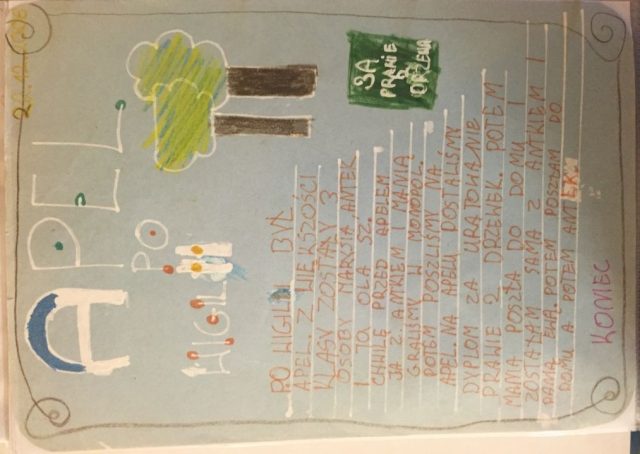 APEL
PO
WIGILII
ZA
PRAWIE
2
DRZEWA
PO WIGILII BYŁ
APEL Z WIĘKSZOŚCI
KLASY ZOSTAŁY 3
OSOBY MARYSIA ANTEK
I JA OLA SZ.
CHWILE PRZED APELEM
JA Z ANTKIEM I MANIĄ
GRALIŚMY W MONOPOL.
POTEM POSZLIŚMY NA
APEL. NA APELU DOSTALIŚMY
DYPLOM ZA URATOWANIE
PRAWIE 2 DRZEWEK. POTEM
MAMA POSZŁA DO DOMU I
ZOSTAŁAM SAMA Z ANTKIEM I
PANIĄ EWĄ. POTEM POSZŁAM DO
DOMU A POTEM ANTEK.
KONIEC